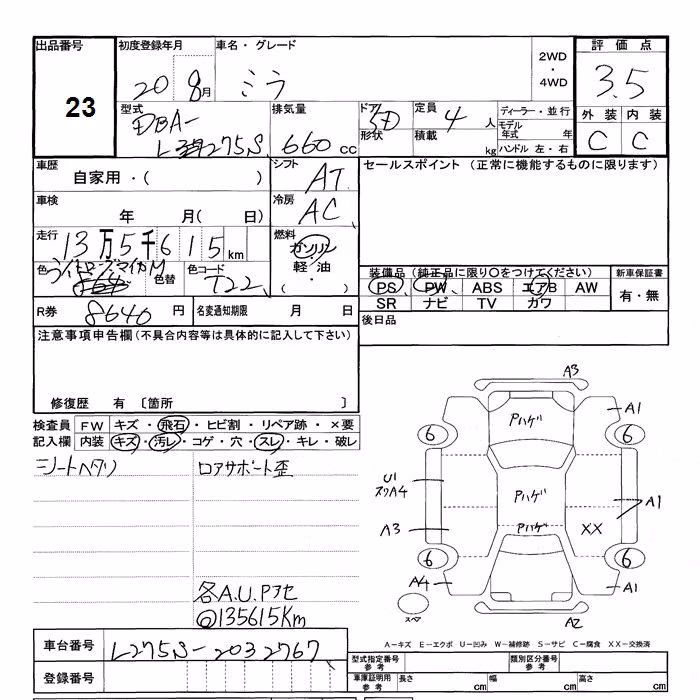 出品番号
23
初度登録年月
20 8月
車名・グレード
ミラ
2WD
・
4WD
評価点
3.5
型式
DBA-
L275S
排気量
660 cc
ドア
5D
形状
定員
4 人
積載
kg
ディーラー・並行
モデル
年式 年
ハンドル 左・右
外装 内装
C C
車歴
自家用・( )
シフト
AT
セールスポイント (正常に機能するものに限ります)
車検
年 月( 日)
冷房
AC
走行
13万5千615km
燃料
ガソリン
軽・油
( ・ )
色
色替
色コード
T22
装備品(純正品に限り○をつけてください)
新車保証書
PS PW ABS エアB AW
有・無
SR ナビ TV カワ
R券
8640 円
名変通知期限 月 日
後日品
注意事項申告欄(不具合内容等は具体的に記入して下さい)
修復歴 有 〔箇所 〕
検査員
記入欄
FW キズ・飛石・ヒビ割・リペア跡・×要
内装 キズ・汚レ・コゲ・穴・スレ・キレ・破レ
シートヘタリ
ロアサポート歪
各A.U.Pアセ
◎135615Km
A3
A1
Pハゲ
6
6
U1
スリA4
Pハゲ
A1
A3
Pハゲ
XX
6
6
A4
A1
スペア
A2
A-キズ E-エクボ U-凹み W-補修跡 S-サビ C-腐食 XX-交換済
車台番号
L275S-2032767
登録番号
型式指定番号
参考
類別区分番号
参考
車庫証明用
参考
長さ cm
幅 cm
高さ cm